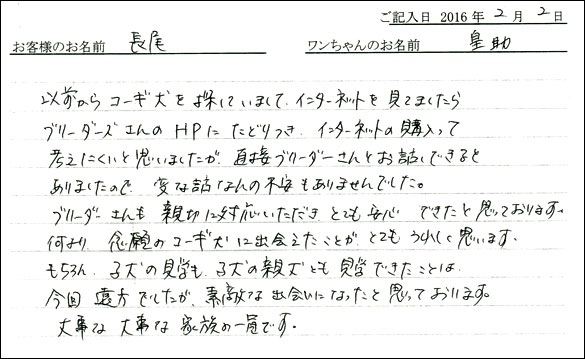 ご記入日 2016年 2月 2日
お客様のお名前 長尾 ワンちゃんのお名前 皇助
以前からコーギ犬を探していまして、インターネットを見てましたら
ブリーダーズさんのHPにたどりつき、インターネットの購入って
考えにくいと思いましたが、直接ブリーダーさんとお話しできると
ありましたので、変な話なんの不安もありませんでした。
ブリーダーさんも親切に対応いただきとても安心できたと思っております。
何より念願のコーギ犬に出会えたことがとてもうれしく思います。
もちろん、子犬の見学も、子犬の親犬とも見学できたことは
今回遠方でしたが、素敵な出会いになったと思っております。
大事な大事な家族の一員です。